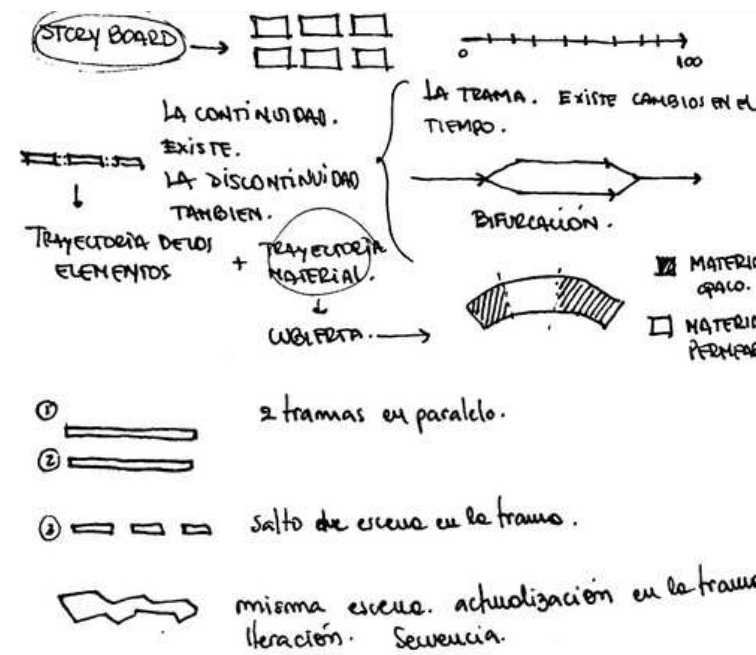 STORY BOARD
0
100
LA CONTINUIDAD.
EXISTE.
LA DISCONTINUIDAD
TAMBIEN.
LA TRAMA. EXISTE CAMBIOS EN EL
TIEMPO.
BIFURCACIÓN.
TRAYECTORIA DE LOS
ELEMENTOS
+ TRAYECTORIA
MATERIAL.
CUBIERTA.
MATERIA
OPACO.
MATERIA
PERMEA
1
2 tramas en paralelo.
2
3
Salto de escena en la trama.
misma escena. actualización en la trama
Iteración. Secuencia.